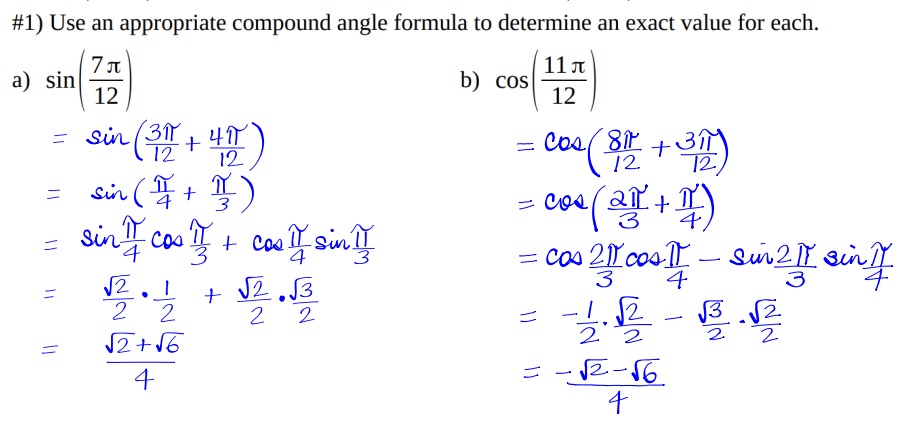 #1) Use an appropriate compound angle formula to determine an exact value for each.
a) sin(7π/12)
= sin(3π/12 + 4π/12)
= sin(π/4 + π/3)
= sin π/4 cos π/3 + cos π/4 sin π/3
= √2/2 · 1/2 + √2/2 · √3/2
= (√2+√6)/4
b) cos(11π/12)
= cos(8π/12 + 3π/12)
= cos(2π/3 + π/4)
= cos 2π/3 cos π/4 − sin 2π/3 sin π/4
= -1/2 · √2/2 − √3/2 · √2/2
= (-√2-√6)/4